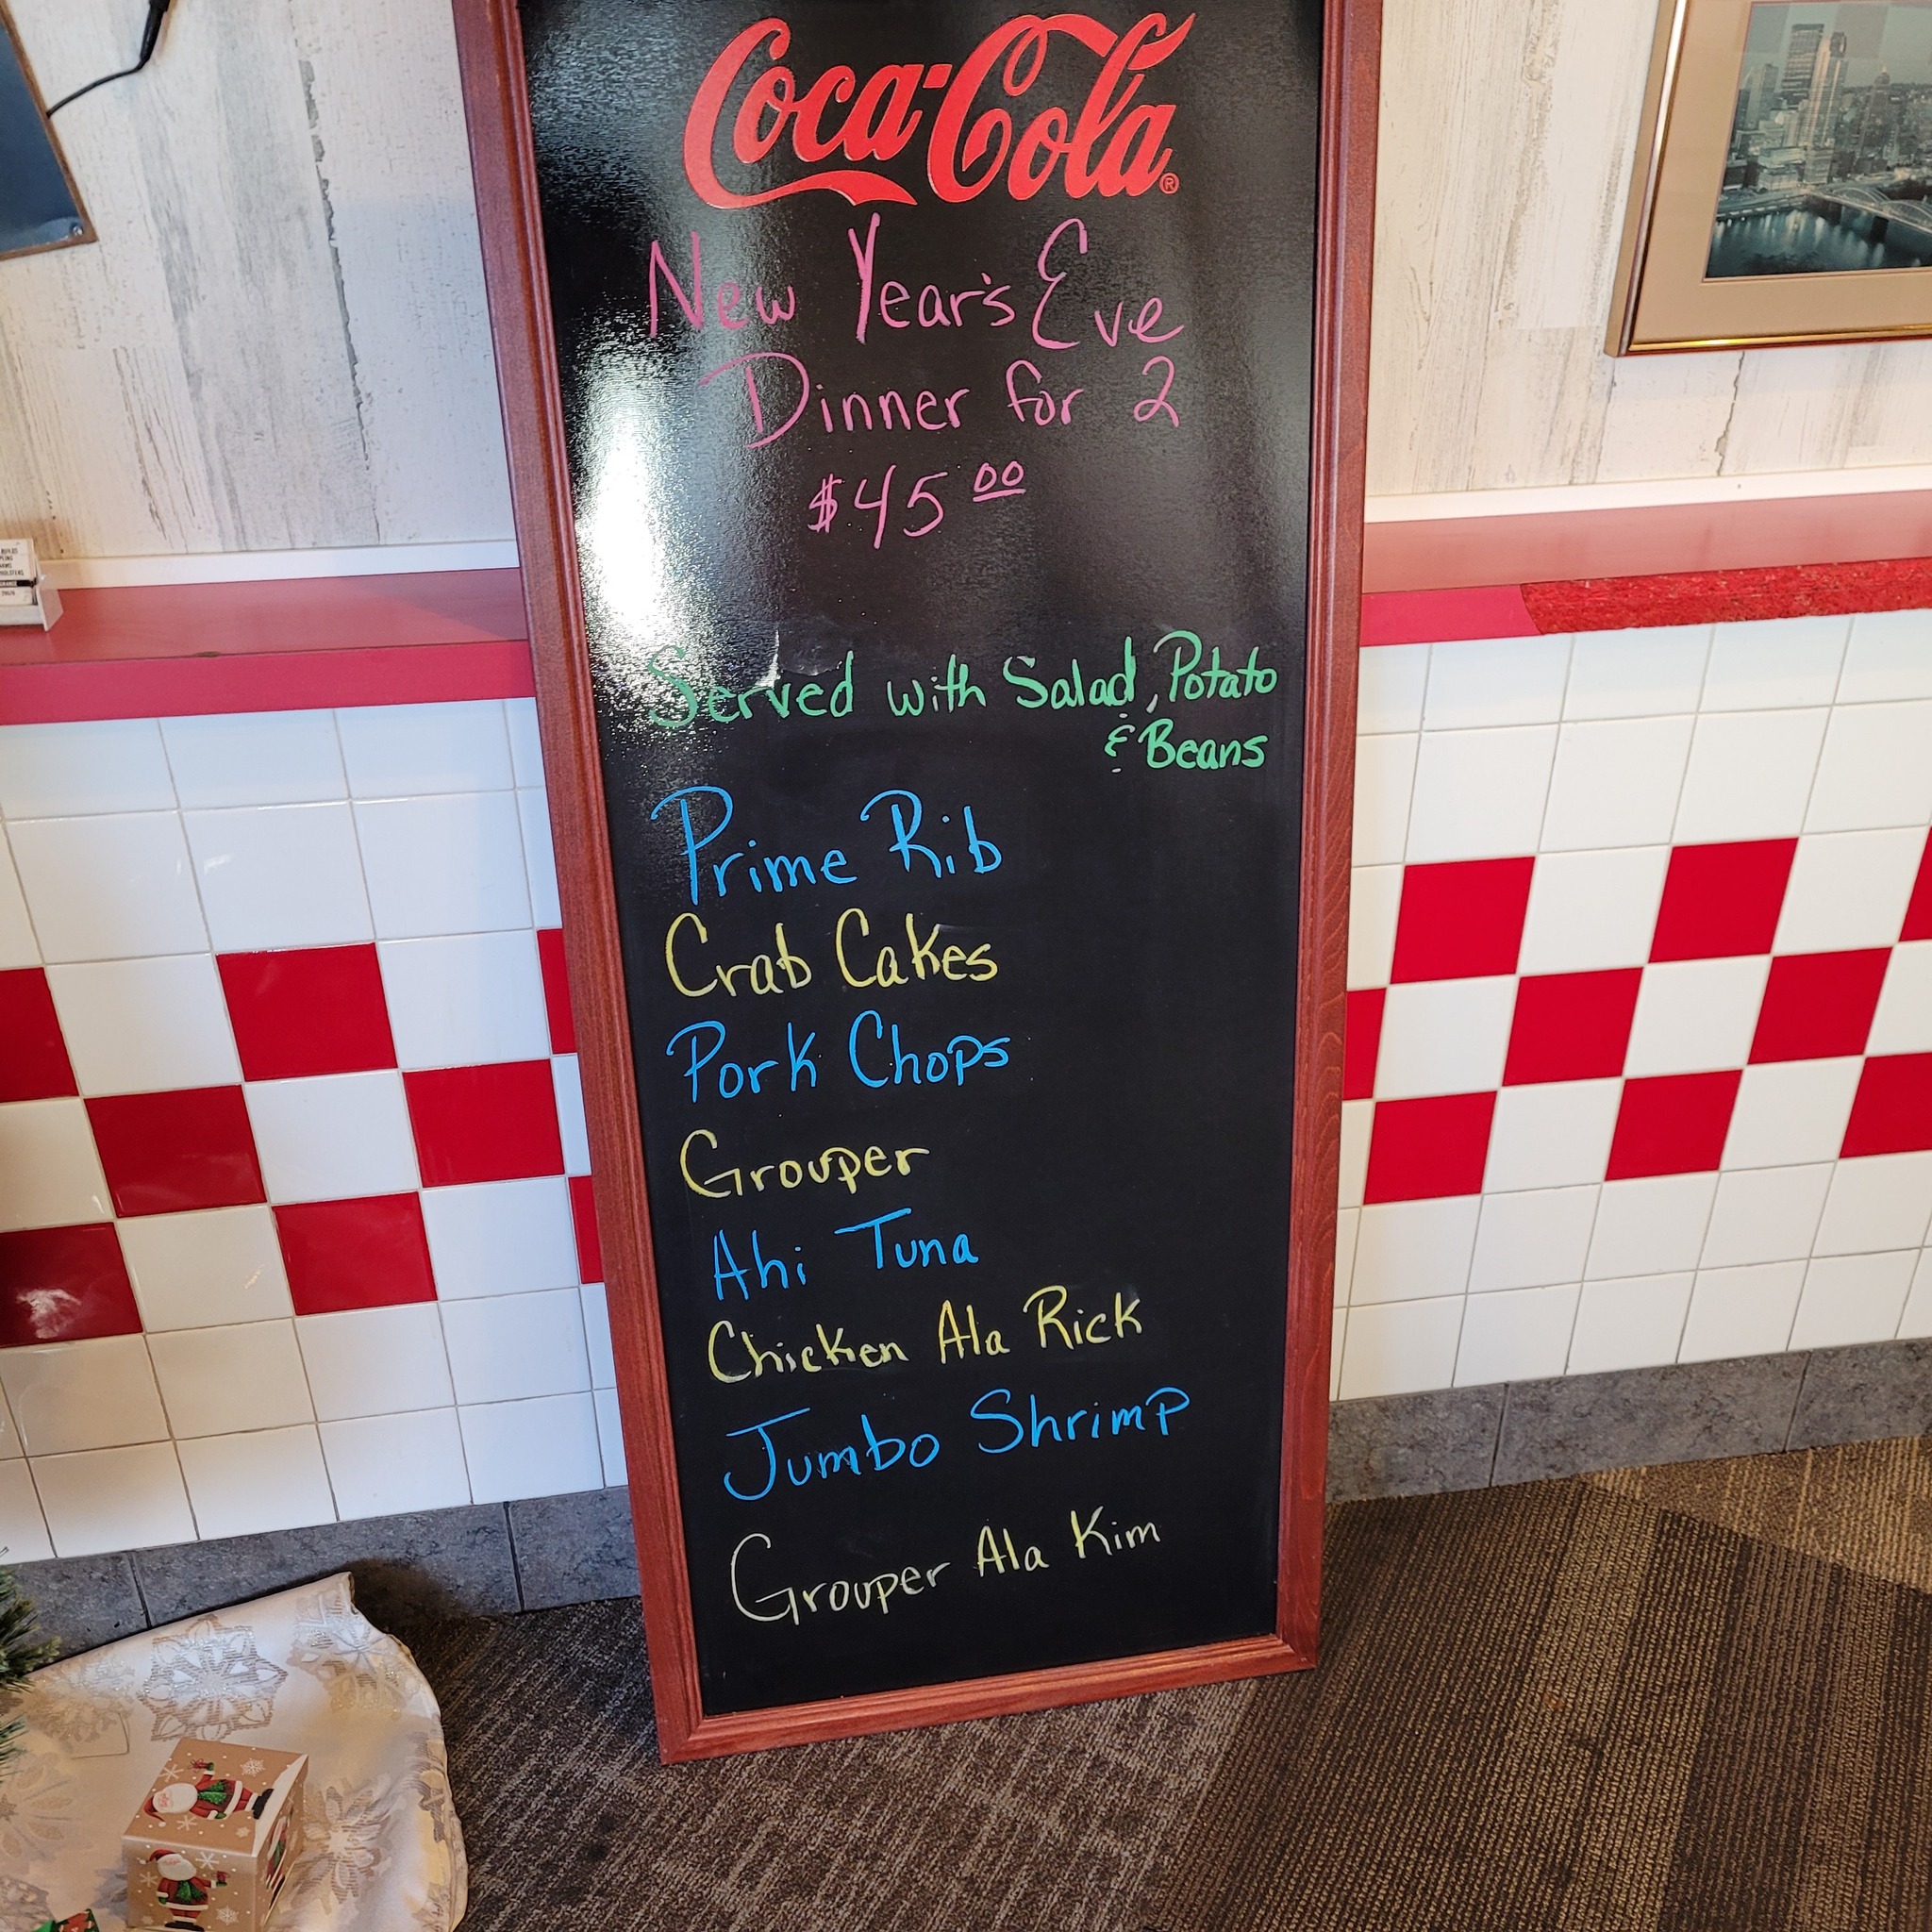 Coca-Cola®
New Year's Eve
Dinner for 2
$45 00
Served with Salad, Potato
& Beans
Prime Rib
Crab Cakes
Pork Chops
Grouper
Ahi Tuna
Chicken Ala Rick
Jumbo Shrimp
Grouper Ala Kim